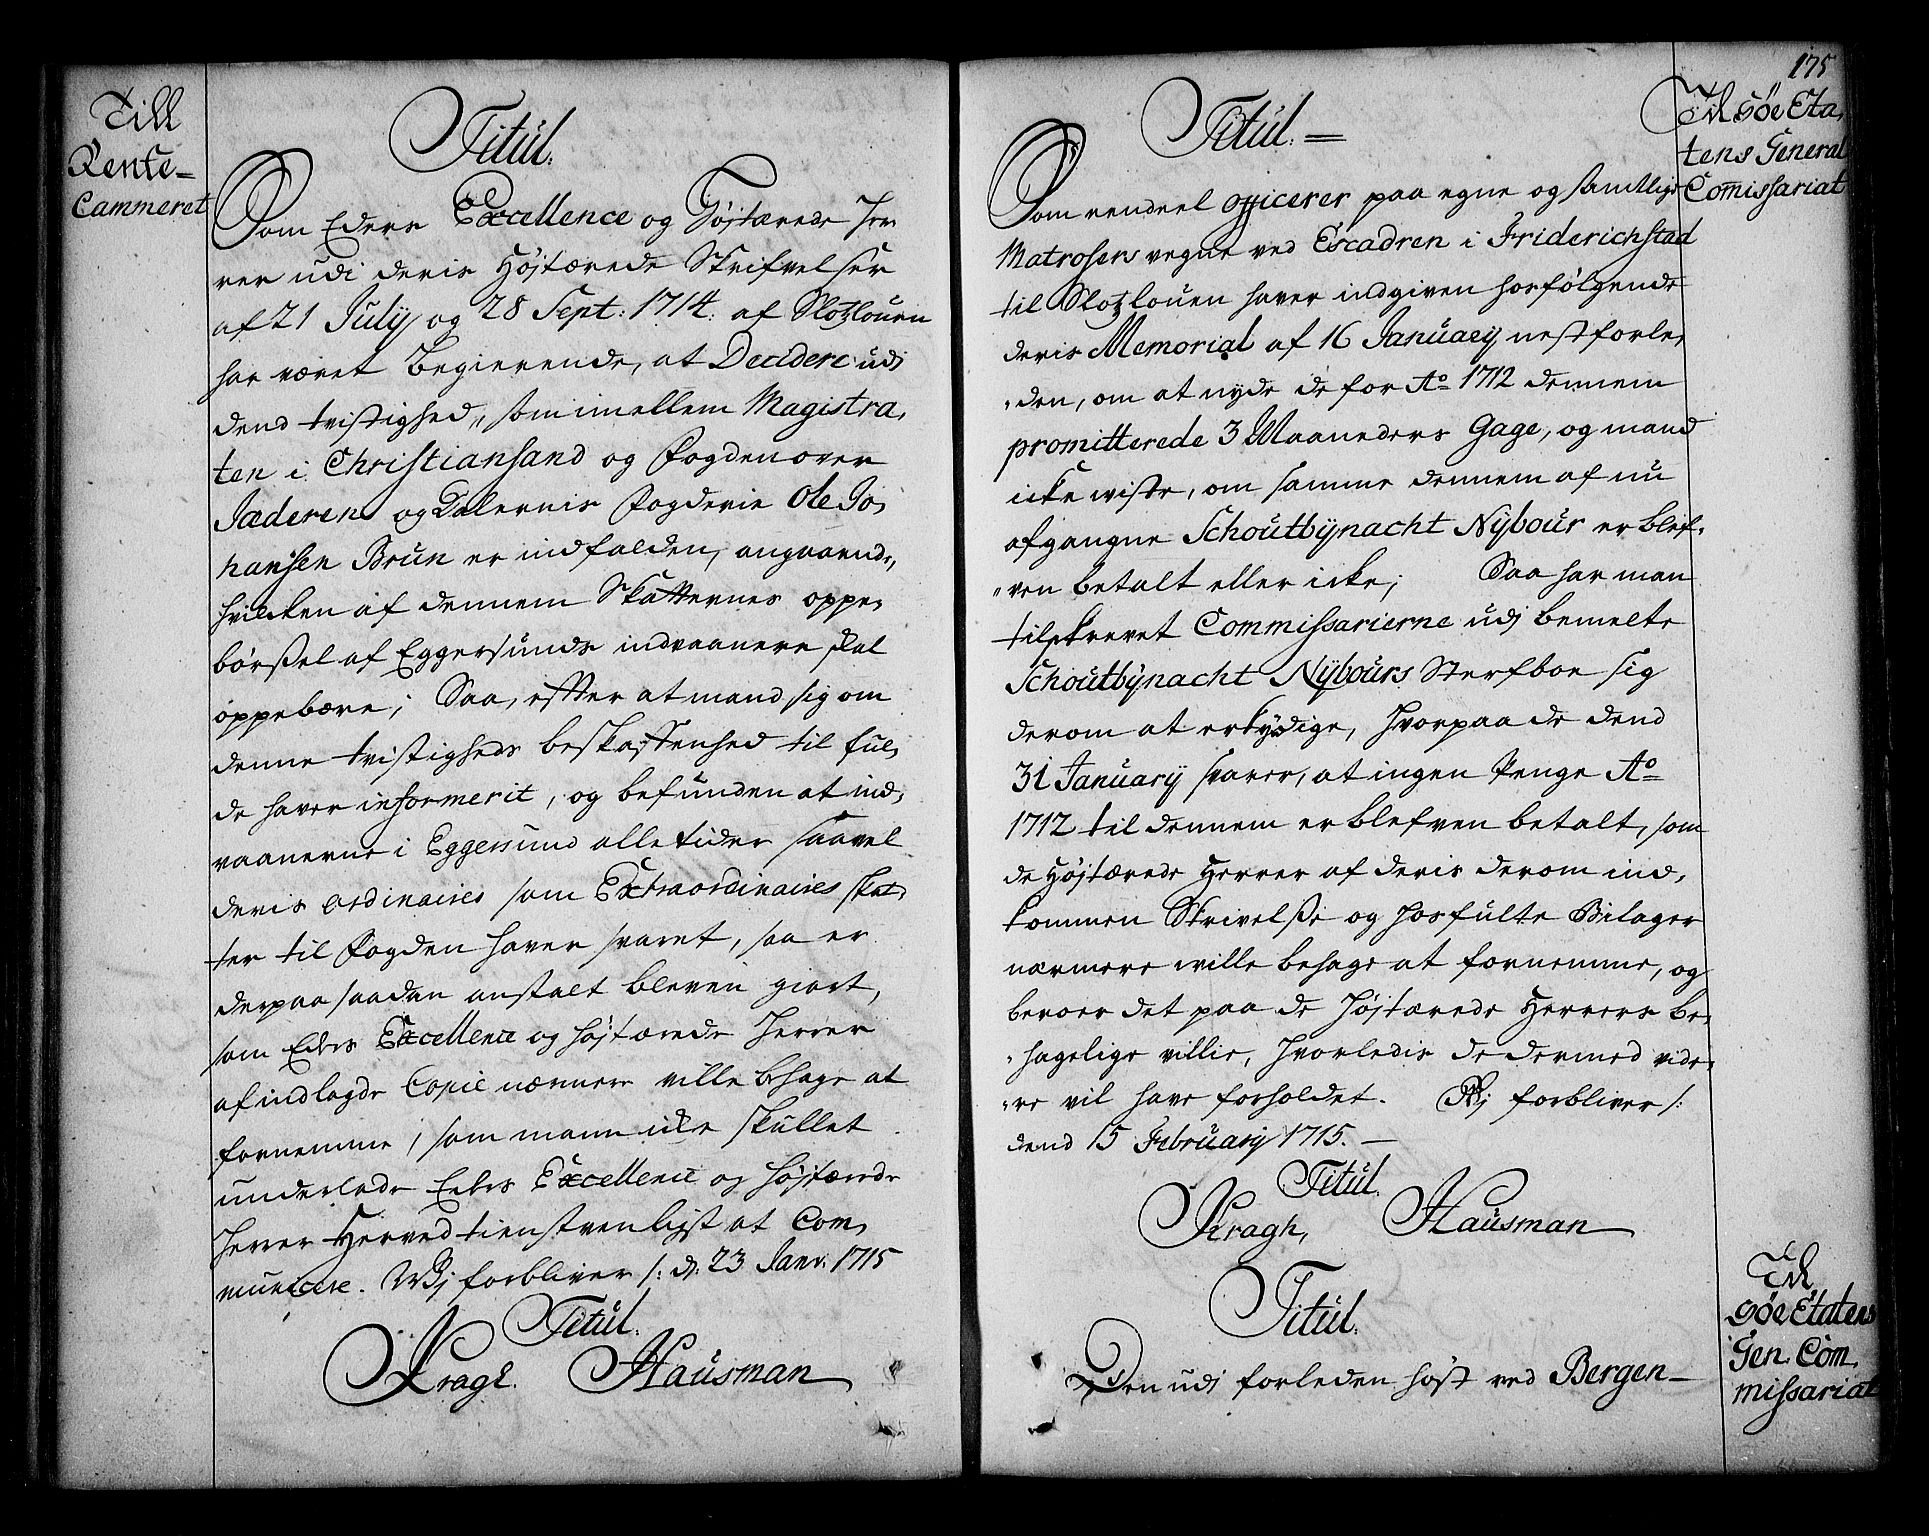 Till
Rente-
Cammeret
Titul.
Som Eders Excellence og Højtærede Her-
rer udi deris Højtærede Skrifvelser
af 21 July og 28 Sept: 1714. af Slotzlouen
har været begierende, at Decidere udj
dend tvistighed, som imellem Magistra,
ten i Christiansand og Fogden over
Jæderen og Dalernis Fogderie Ole Jo,
hansen Brun er indfalden, angaaende,
hvilcken af dennem Skatternes oppe,
børssel af Eggersunds indvaanere skal
oppebære; Saa, efter at mand sig om
denne tvistigheds beskaffenhed til ful,
de haver informerit, og befunden at ind,
vaanerne i Eggersund alletider saavel
deris ordinaires som Extraordinaires skat,
ter til Fogden haver svaret, saa er
derpaa saadan anstalt bleven giort,
som Eders Excellence og højtærede Herrer
af indlagde Copie nærmere ville behage at
fornemme, som mann icke skullet
underlade Eders Excellence og højtærede
Herrer Herved tienstvenligst at Com,
municere. Wj forbliver /: d: 23 Janr: 1715
Titul.
Kragh. Hausman
175
Til Søe Eta,
tens General
Comissariat
Titul. =
Som eendeel officerer paa egne og samtlige
Matrosers vegne ved Escadren i Friderichstad
til Slotzlouen haver indgiven hosfølgende
deris Memorial af 16 January nestforle,
den, om at nyde de for Ao 1712 dennem
promitterede 3 Maaneders Gage, og mand
icke viste, om samme dennem af nu
afgangne Schoutbynacht Nybour er blef,
ven betalt eller icke; Saa har man
tilskrevet Commissarierne udj bemelte
Schoutbynacht Nybours Sterfboe sig
derom at erkyndige, hvorpaa de dend
31 January svarer, at ingen Penge Ao
1712 til dennem er blefven betalt, som
de Højtærede Herrer af deris derom ind,
kommen Skrivelsse og hosfulte Bilager
nærmere wille behage at fornemme, og
beroer det paa de højtærede Herrers be,
hagelige villie, hvorledis de dermed vide,
re vil have forholdet. Wj forbliver /:
dend 15 February 1715. -
Titul.
Kragh, Hausman
Til
Søe Etatens
Gen. Com,
missariat
Titul.
Den udj forleden høst ved Bergen